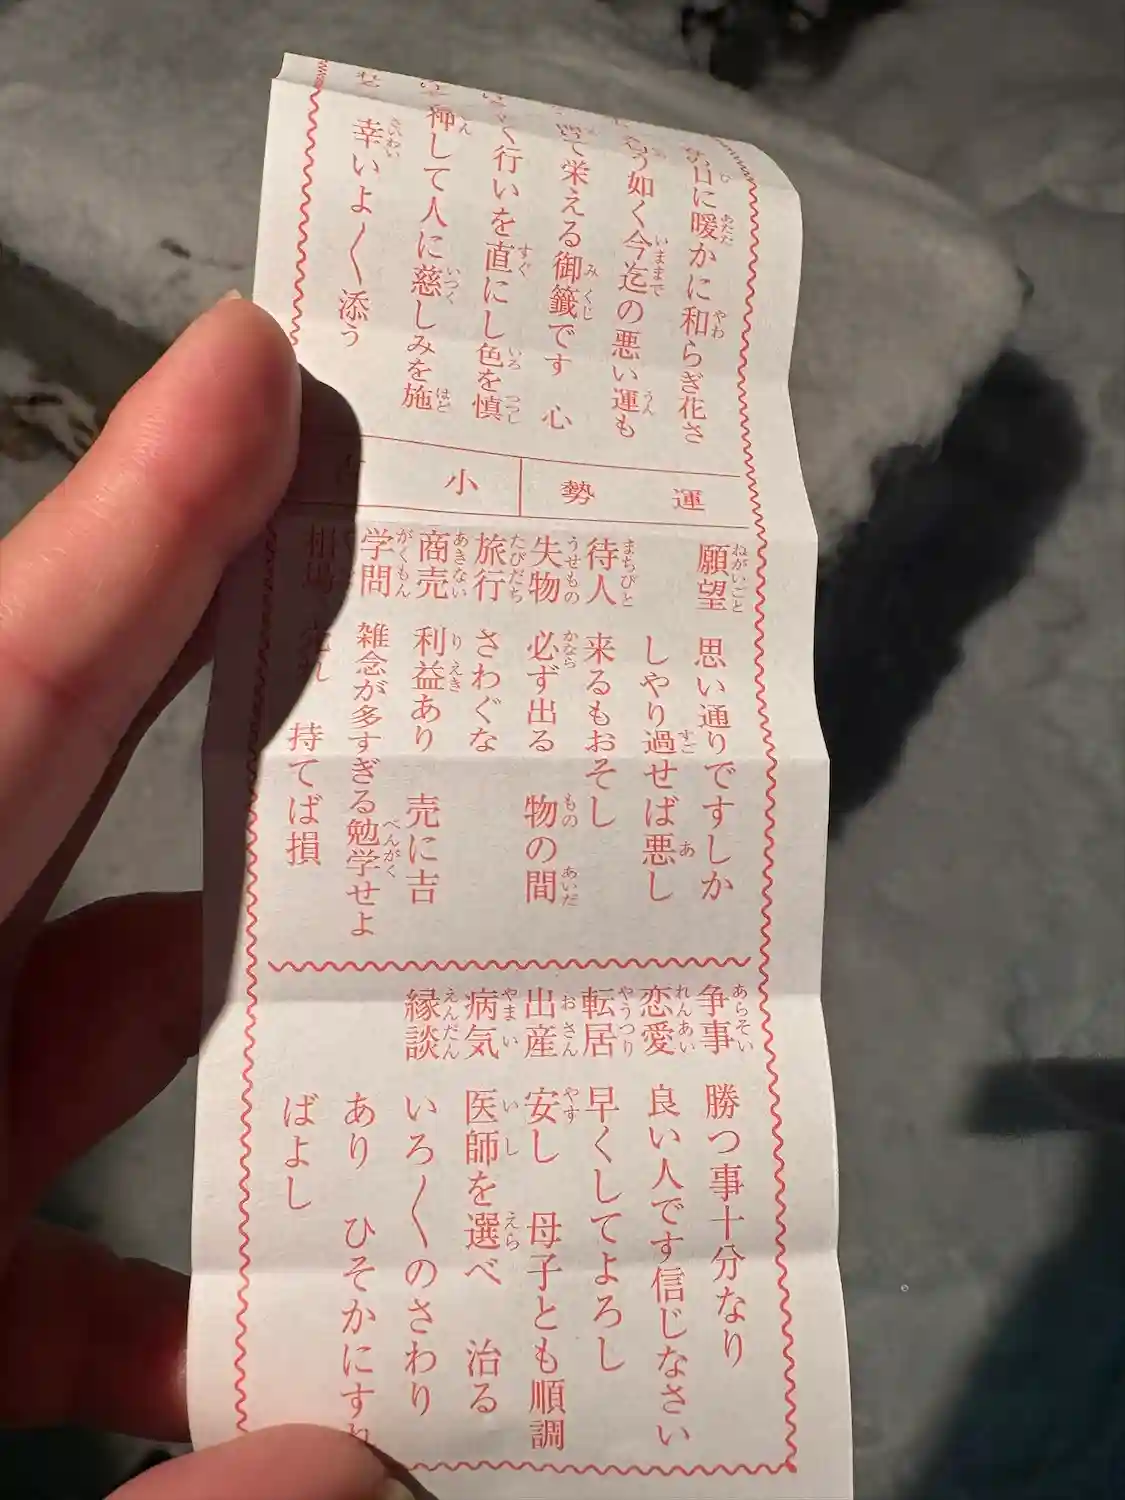 日に暖かに和らぎ花さ
う如く今迄の悪い運も
て栄える御籤です 心
く行いを直にし色を慎
神して人に慈しみを施
幸いよ〱添う
運勢 小
願望 思い通りですしか
しやり過せば悪し
待人 来るもおそし
失物 必ず出る 物の間
旅行 さわぐな
商売 利益あり 売に吉
学問 雑念が多すぎる勉学せよ
相場 売れ 持てば損
争事 勝つ事十分なり
恋愛 良い人です信じなさい
転居 早くしてよろし
出産 安し 母子とも順調
病気 医師を選べ 治る
縁談 いろ〱のさわり
あり ひそかにすれ
ばよし